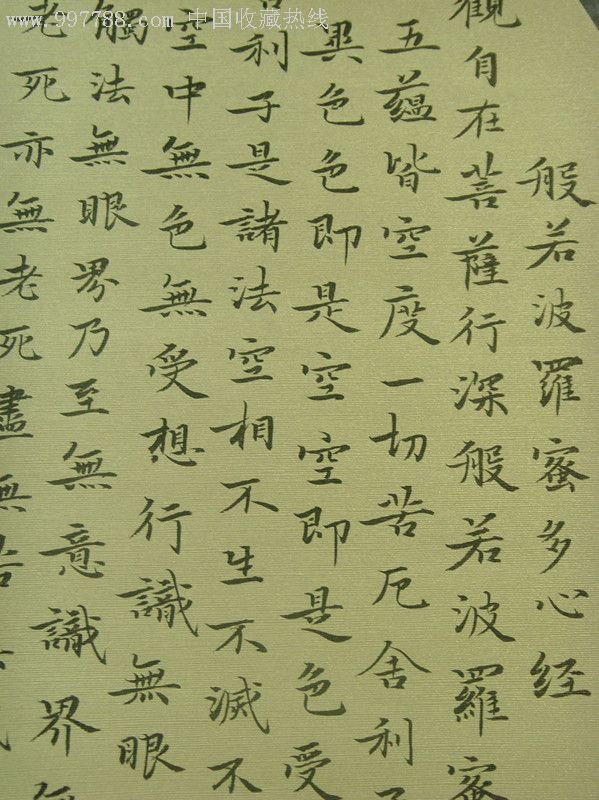 www.997788.com 中国收藏热线
般若波羅蜜多心经
觀自在菩薩行深般若波羅蜜
五蘊皆空度一切苦厄舍利子
異色色即是空空即是色受
利子是諸法空相不生不滅不
空中無色無受想行識無眼
觸法無眼界乃至無意識界無
老死亦無老死盡無苦